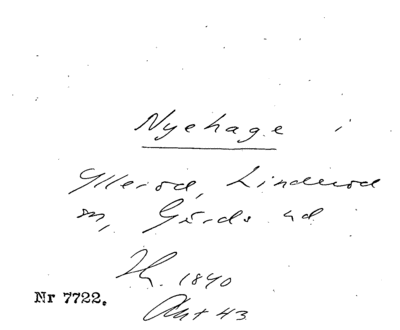 Nyehage i
Ylleröd, Linderöd
sn, Gärds hd
Nr 7722. 1840
Akt 43